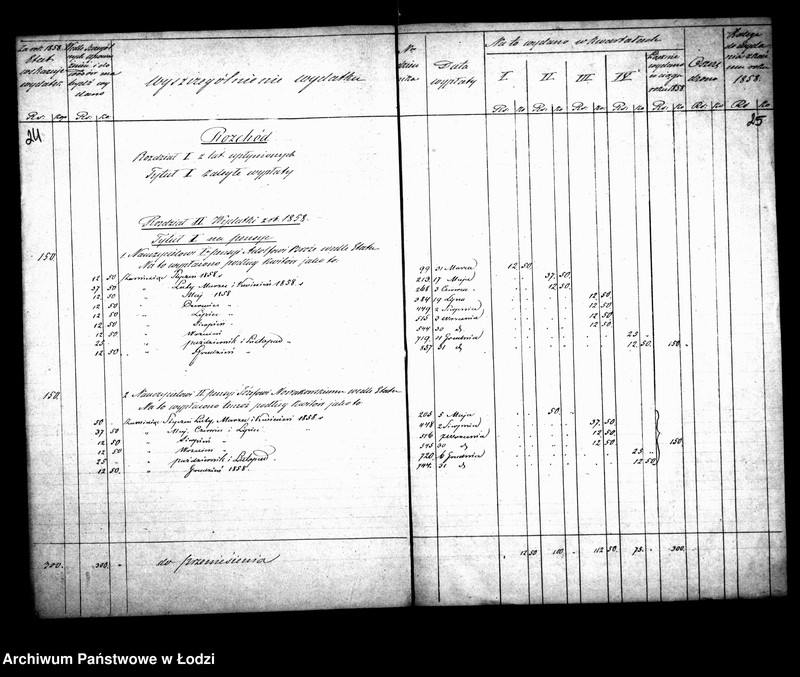 Wyszczególnienie wydatku
Data wypłaty
Na to wydano w kwartałach
I. II. III. IV.
1858.
Rs. ko Rs. ko Rs. ko Rs. ko Rs. ko Rs. ko Rs. ko
24 25
Rozchód
Rozdział I z lat upłynionych
Tytuł I zaległe wypłaty
Rozdział II Wydatki z ok. 1858.
Tytuł I na pensye
150. 1. Nauczycielowi I pensyi Adolfowi wedle Etatu
Na to wypłacono podług kwitów jako to:
12 50 za miesiąc Styczeń 1858 r. 99 31 Marca 12 50
37 50 " Luty Marzec i Kwiecień 1858 r. 213 17 Maja 37 50
12 50 " Maj 1858 268 3 Czerwca 12 50
12 50 " Czerwiec " 384 19 Lipca 12 50
12 50 " Lipiec " 449 2 Sierpnia 12 50
12 50 " Sierpień " 515 3 Wrzesnia 12 50
12 50 " Wrzesień " 544 30 d 12 50
25 " październik i Listopad " 719 11 Grudnia 25
12 50 " Grudzień " 31 d 12 50 150
150. 2 Nauczycielowi II pensyi Józefowi wedle Etatu
Na to wypłacono temuż podług kwitów jako to
50 za miesiąc Styczeń Luty Marzec i Kwiecień 1858 r. 205 5 Maja 50
37 50 " Maj Czerwiec i Lipiec " 448 2 Sierpnia 37 50
12 50 " Sierpień " 516 Wrzesnia 12 50
12 50 " Wrzesień " 545 30 d 12 50
25 " październik i Listopad 720 16 Grudnia 25 150
12 50 " Grudzień 1858. 744 31 d 12 50
300. 300. do przeniesienia 12 50 100 112 50 75 300
Archiwum Państwowe w Łodzi